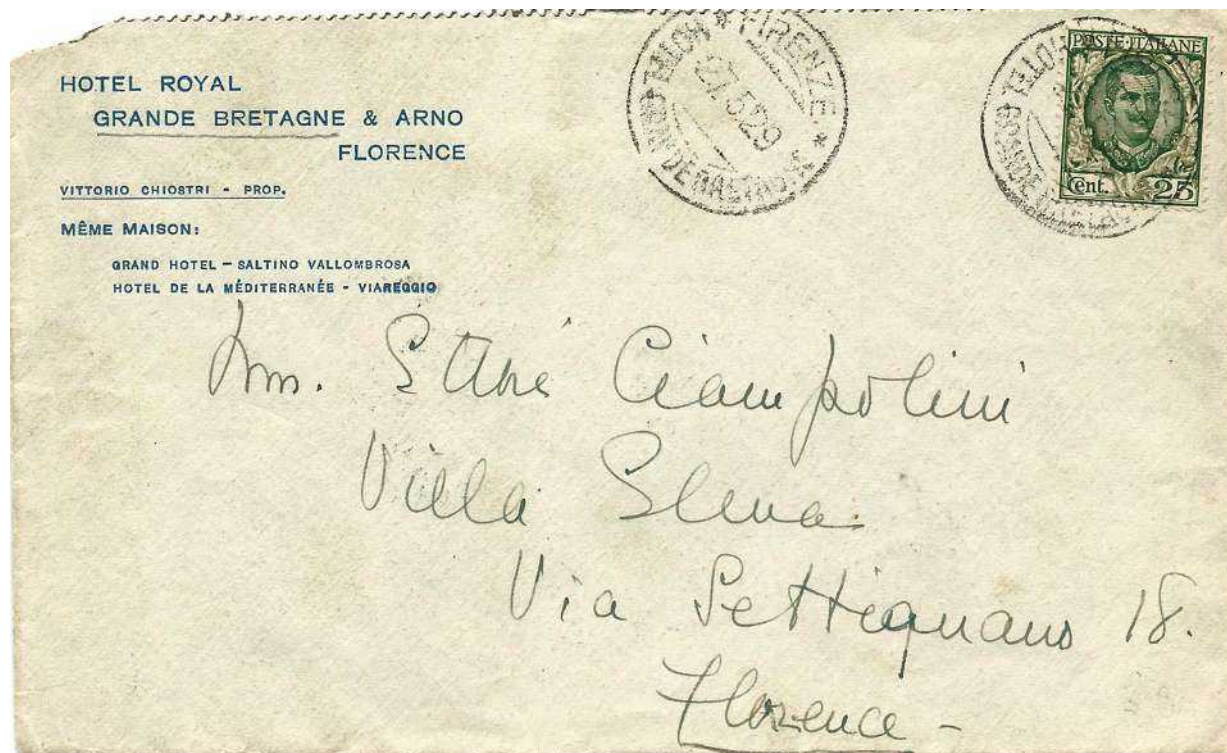 HOTEL ROYAL
GRANDE BRETAGNE & ARNO
FLORENCE
VITTORIO CHIOSTRI - PROP.
MÊME MAISON:
GRAND HOTEL – SALTINO VALLOMBROSA
HOTEL DE LA MÉDITERRANÉE - VIAREGGIO
* FIRENZE *
27.5.29
HOTEL GRANDE
POSTE ITALIANE
Cent. 25
HOTEL GRANDE
Ciampolini
Villa Elena
Via Settignano 18.
Florence -